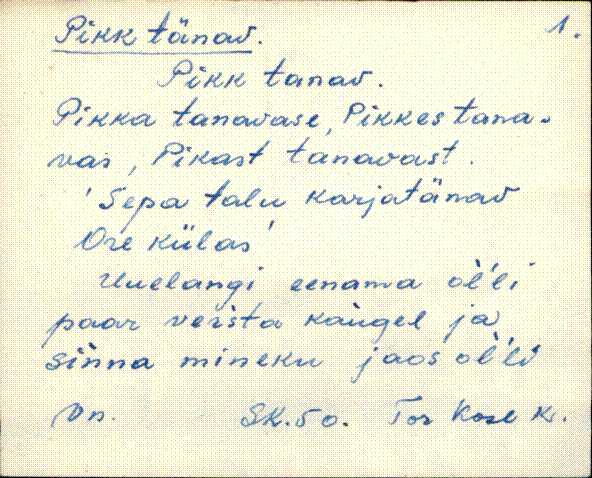 Pikk tänav. 1.
Pikk tanav.
Pikka tanavase, Pikkes tana-
vas, Pikast tanavast.
'Sepa talu karjatänav
Ore külas'
Uuelangi eenama òl̀li
paar veŕsta kaugel ja
sinna mineku jaos òl̀li
Vn. SK. 50. Tor Kose k.